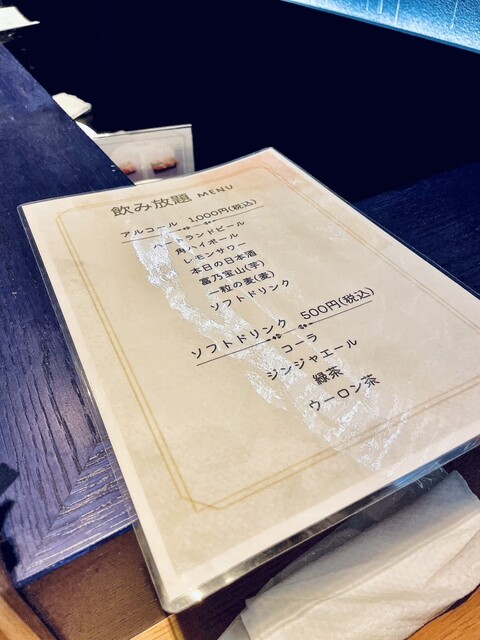 飲み放題 MENU
アルコール 1,000円(税込)
ハートランドビール
角ハイボール
レモンサワー
本日の日本酒
富乃宝山(芋)
一粒の麦(麦)
ソフトドリンク
ソフトドリンク 500円(税込)
コーラ
ジンジャエール
緑茶
ウーロン茶